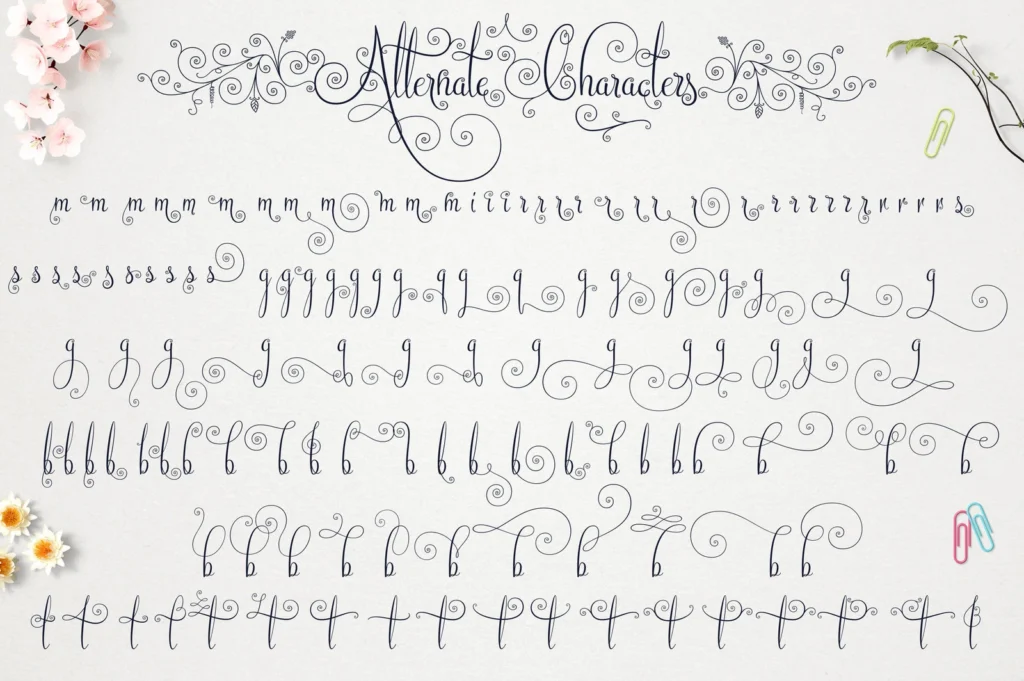 Alternate Characters
m m m m m m m m m m m m i i i r r r r r r r r r r r r r r r r r r r s
s s s s s s s s s s g g g g g g g g g g g g g g g g g
g g g g g g g g g g g g g g
b b b b b b b b b b b b b b b b b b b b b b b
b b b b b b b b b b b
f f f f f f f f f f f f f f f f f f